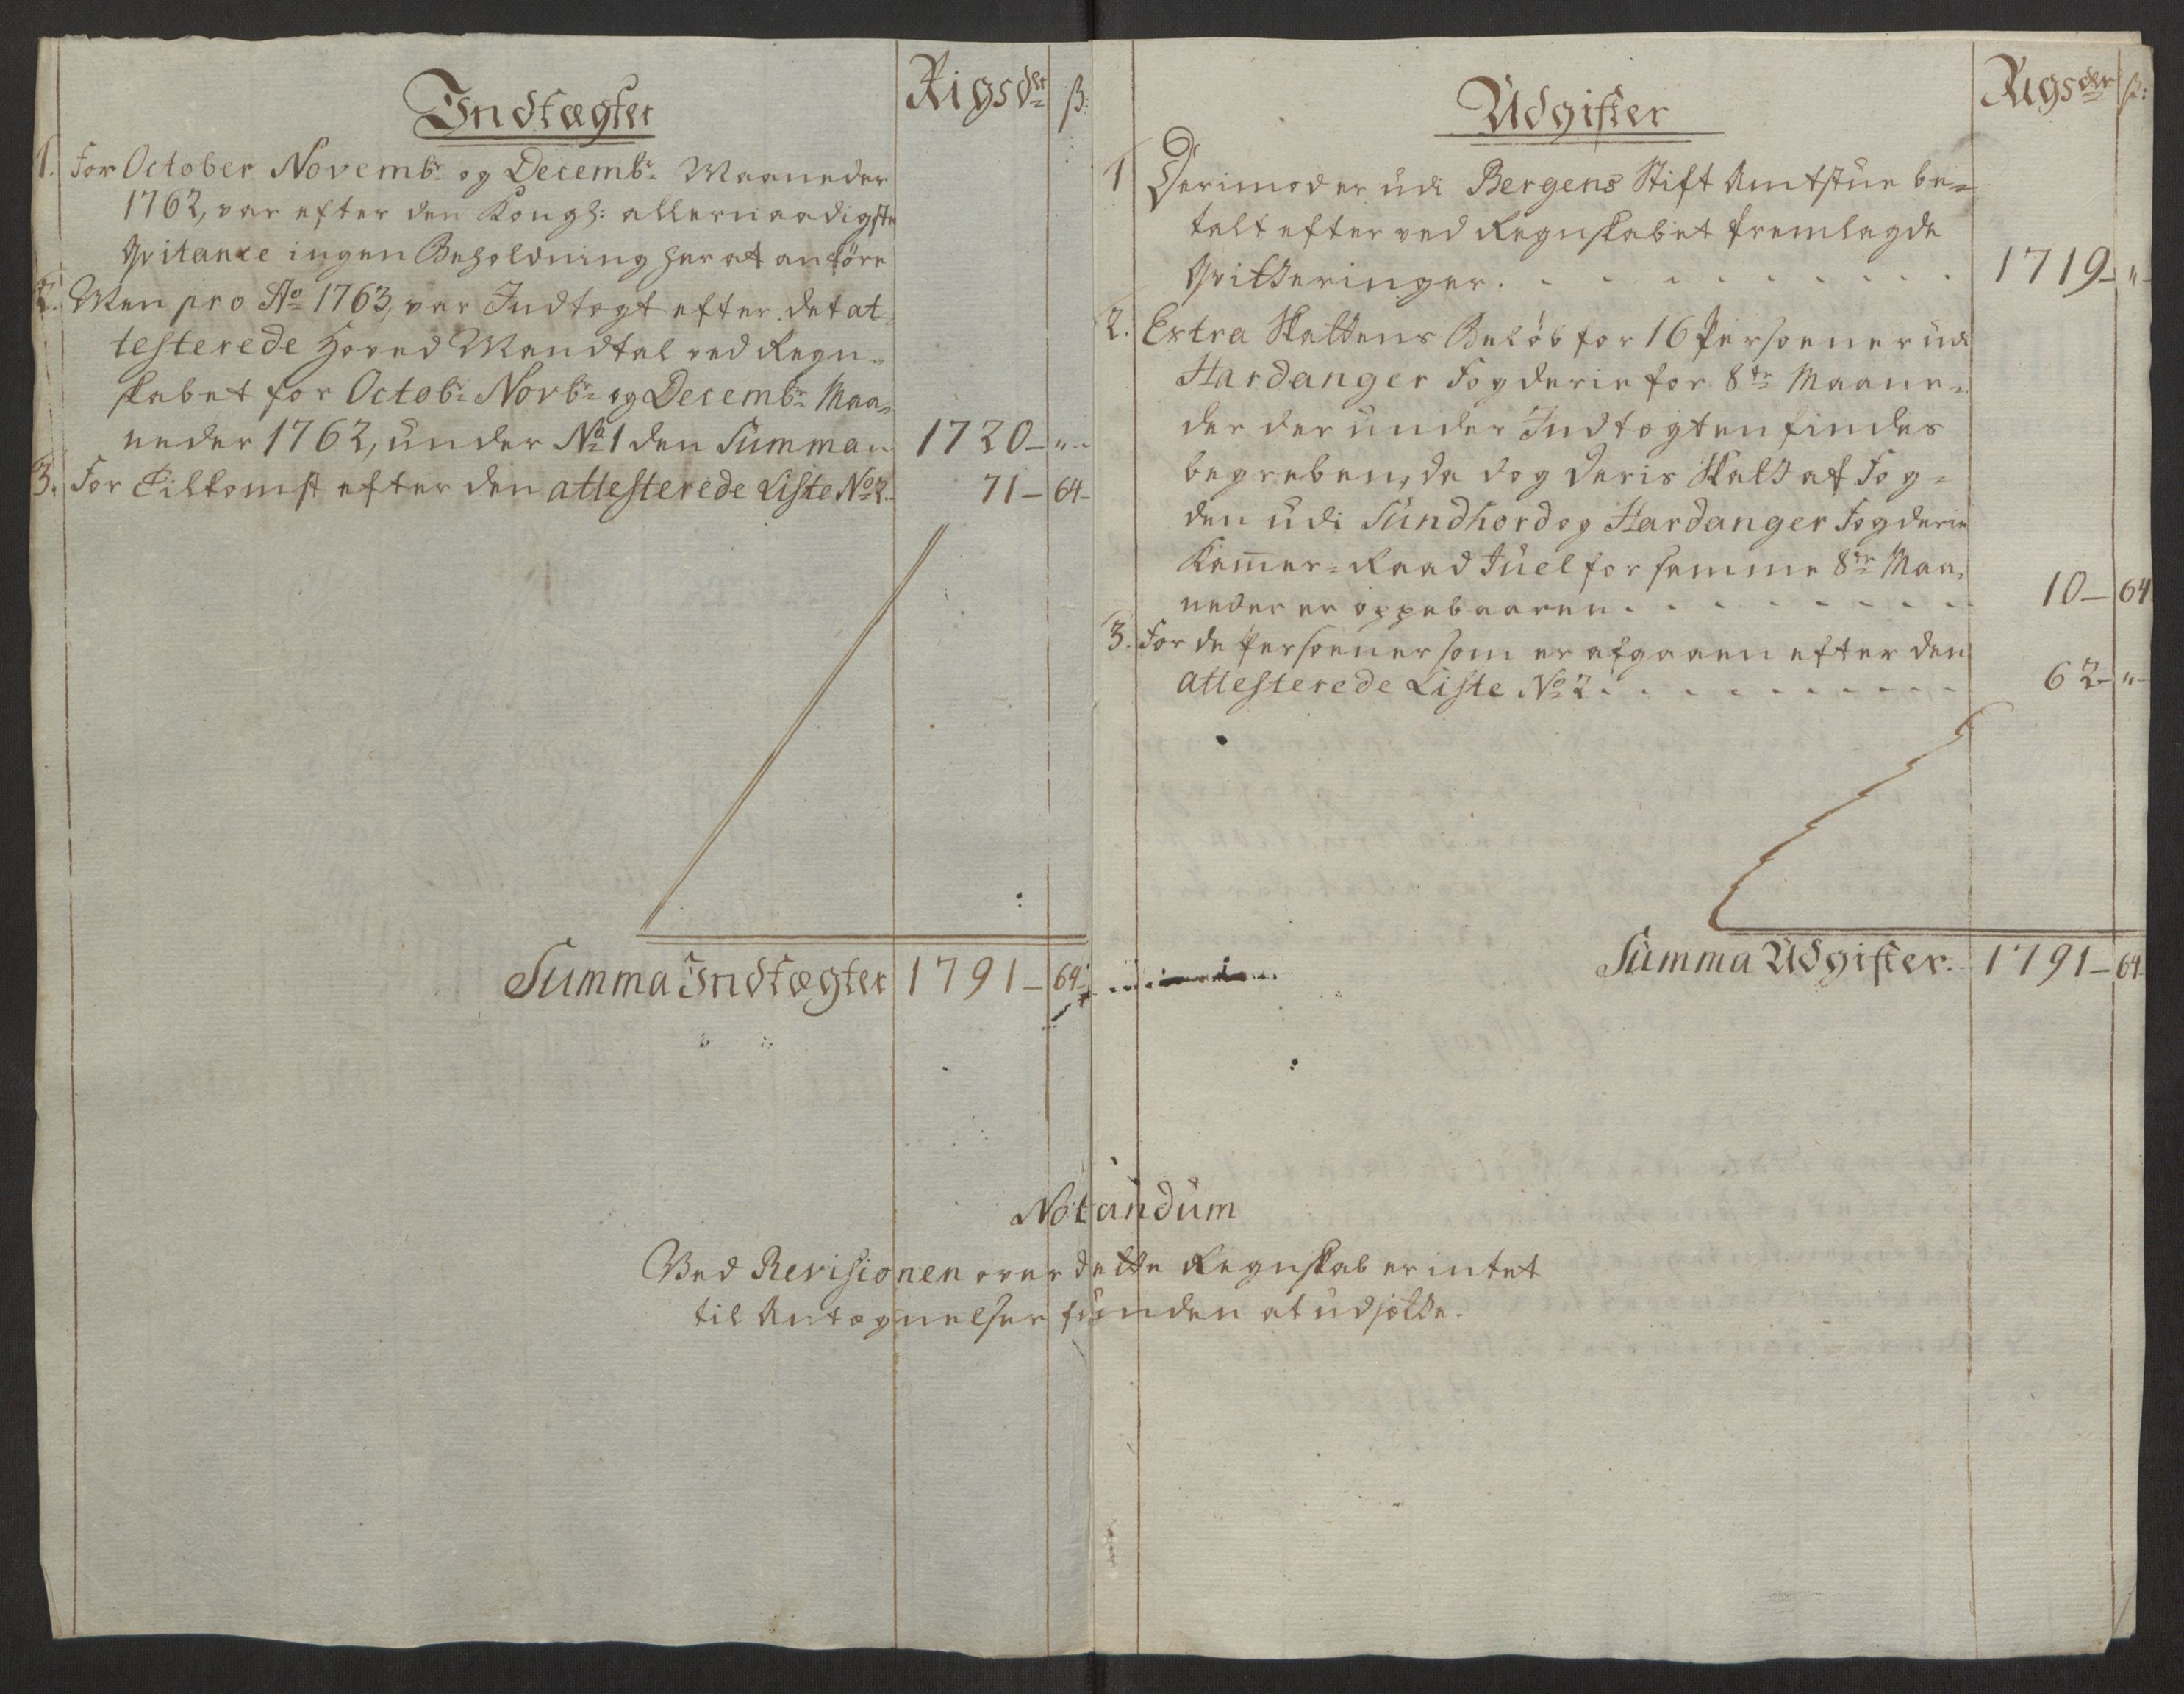 Indtægter
Rigsdr
ß:
1. For October Novembr og Decembr Maaneder
1762, var efter den Kongl: allernaadigste
Qvitance ingen Beholdning her at anföre
2. Men pro Ao 1763, var Indtægt efter det at-
testerede Hoved Mandtal ved Regn-
skabet for Octobr Novbr og Decembr Maa-
neder 1762, under No 1 den Summa 1720 - "
3. For Tilkomst efter den attesterede Liste No 2. 71 - 64
Summa Indtægter 1791 - 64
Udgifter
Rigsder
ß:
1 Derimod er udi Bergens Stift Amtstue be-
talt efter ved Regnskabet fremlagde
Qvitteringer . . . 1719 - "
2. Extra Skattens Beløb for 16 Persoener udi
Hardanger Fogderie for 8te Maane-
der der under Indtægten findes
begreben, da dog deris Skatt af Fog-
den udi Sundhord og Hardanger Fogderie
Kammer-Raad Juel for samme 8te Maa-
neder er oppebaaren . . . 10 - 64
3. For de Persoener som er afgaaen efter den
attesterede Liste No 2 . . . 62 - "
Summa Udgifter. 1791 - 64
Notandum
Ved Revisionen over dette Regnskab er intet
til Antegnelser funden at udsætte.